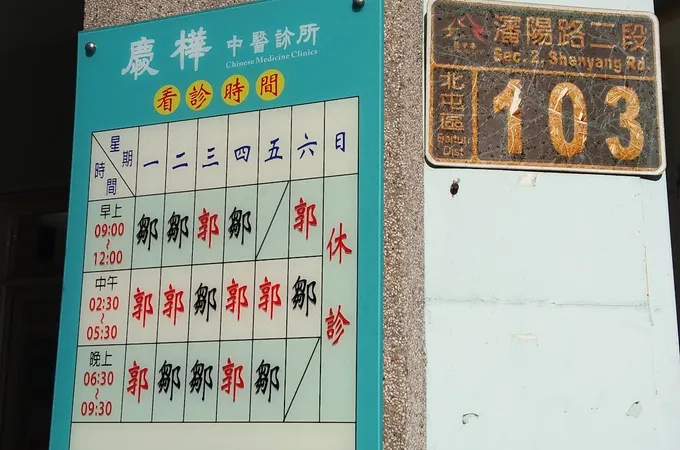 慶樺 中醫診所
Chinese Medicine Clinics
看診時間
星期 時間 一 二 三 四 五 六 日
早上 09:00~12:00 鄒 鄒 郭 鄒 郭
中午 02:30~05:30 郭 郭 鄒 郭 郭 鄒
晚上 06:30~09:30 郭 鄒 鄒 郭 鄒
休診
瀋陽路二段
Sec. 2, Shenyang Rd.
北屯區
Beitun Dist.
103